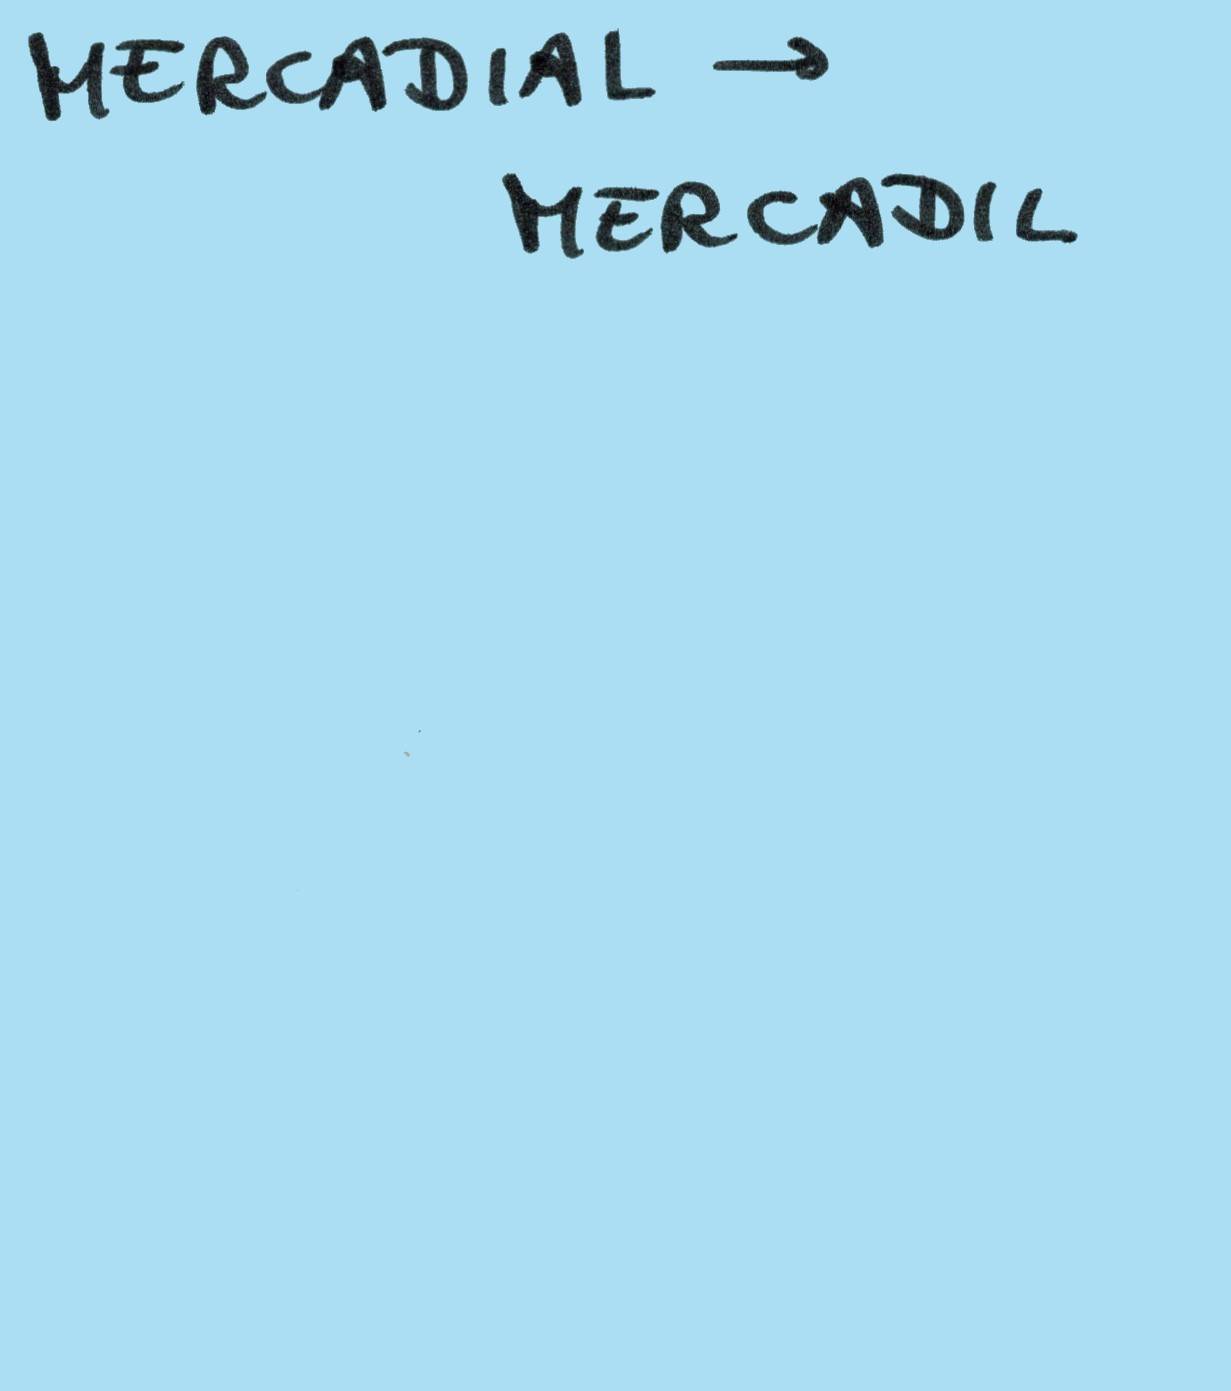 MERCADIAL →
MERCADIL